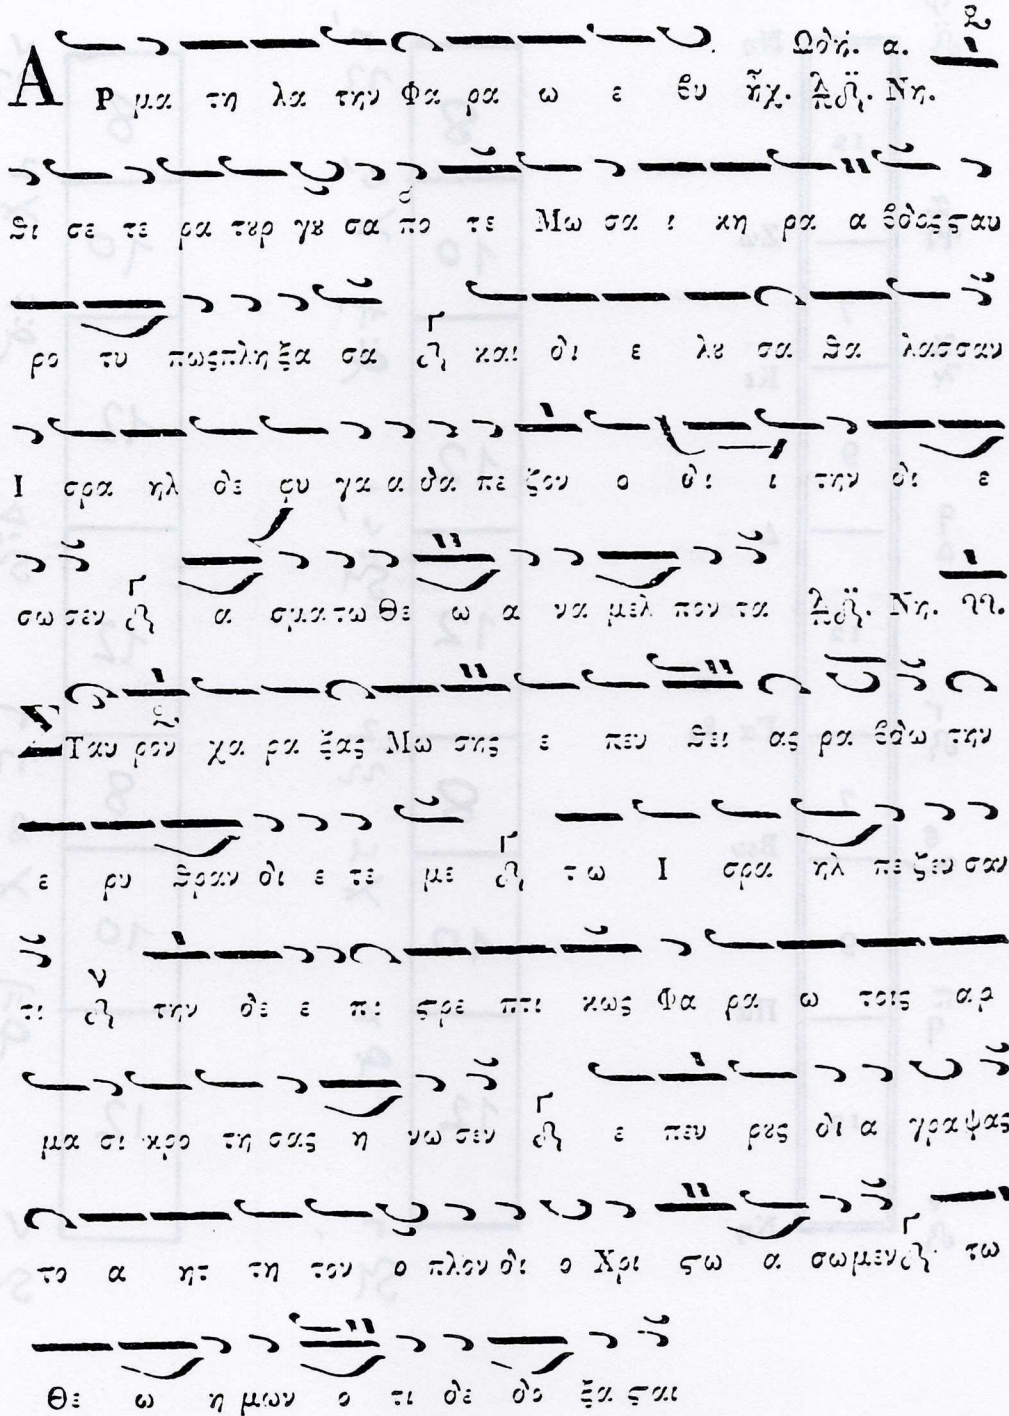 Ωδή. α.
Α Ρ μα τη λα την Φα ρα ω ε βυ ἦχ. Νη.
θι σε τε ρα τȣρ γȣ σα πο τε Μω σα ι κη ρα α βδοςϛαυ
ρο τυ πωςπλη ξα σα και δι ε λȣ σα θα λασσαν
Ι σρα ηλ δε φυ γα α δα πε ζον ο δι ι την δι ε
σω σεν α σμα τω Θε ω α να μελ πον τα Νη.
Σ Ταυ ρον χα ρα ξας Μω σης ε πευ θει ας ρα βδω την
ε ρυ θραν δι ε τε με τω Ι σρα ηλ πε ζευ σαν
τι την δε ε πι ϛρε πτι κως Φα ρα ω τοις αρ
μα σι κρο τη σας η νω σεν ε πευ ρȣς δι α γραψας
το α ητ τη τον ο πλον δι ο Χρι ϛω α σωμεν τω
Θε ω η μων ο τι δε δο ξα ϛαι